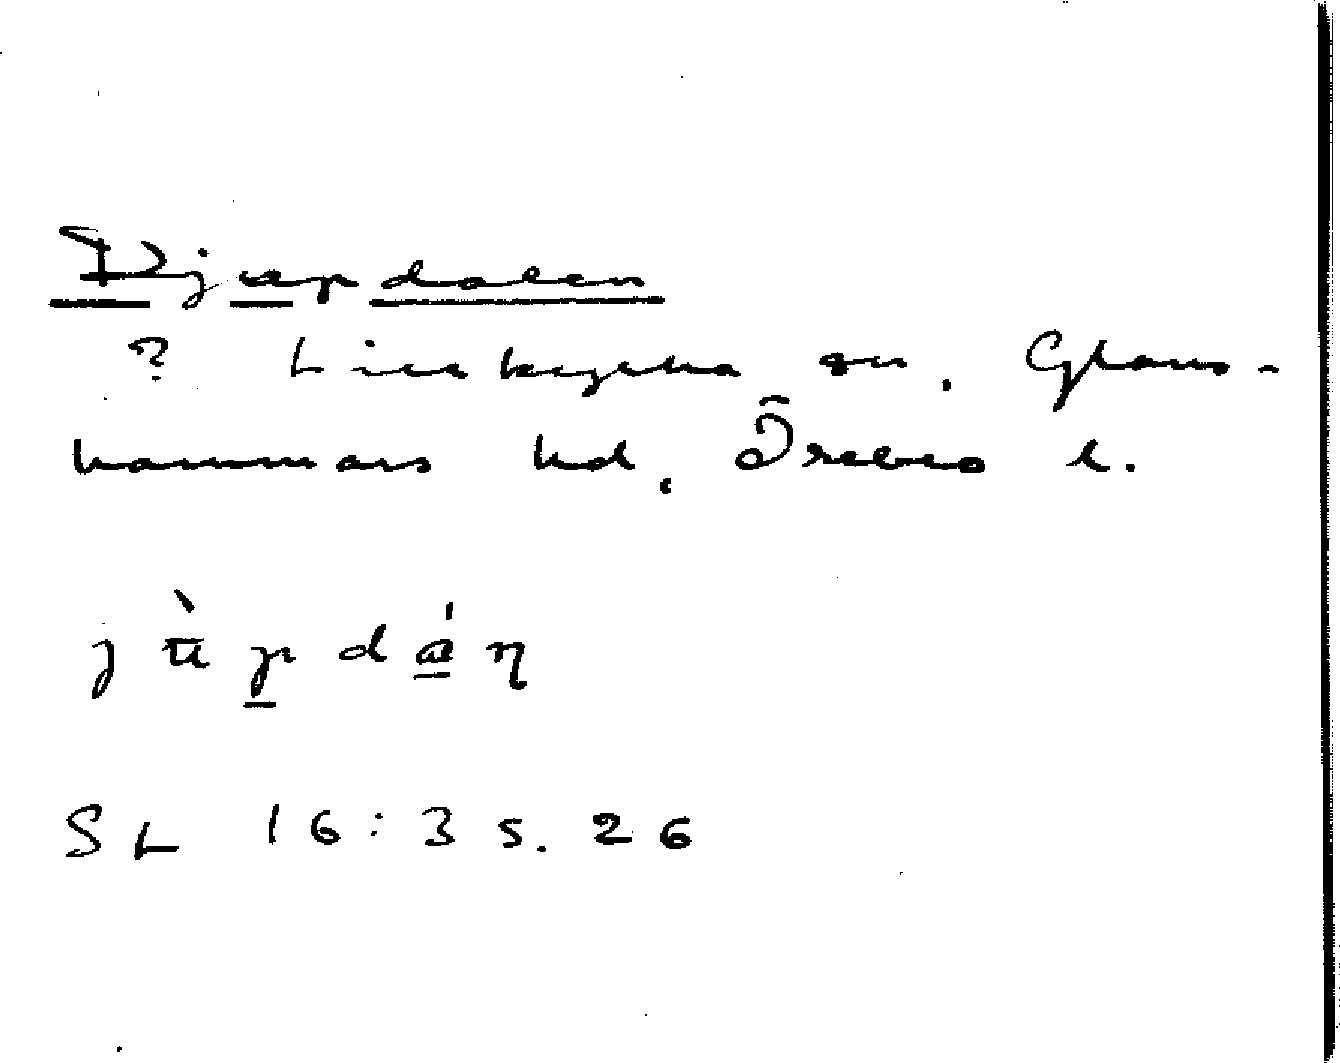 Djupdalen
? Lillkyrka sn, Glans-
hammars hd, Örebro l.
SL 16:3 s. 26